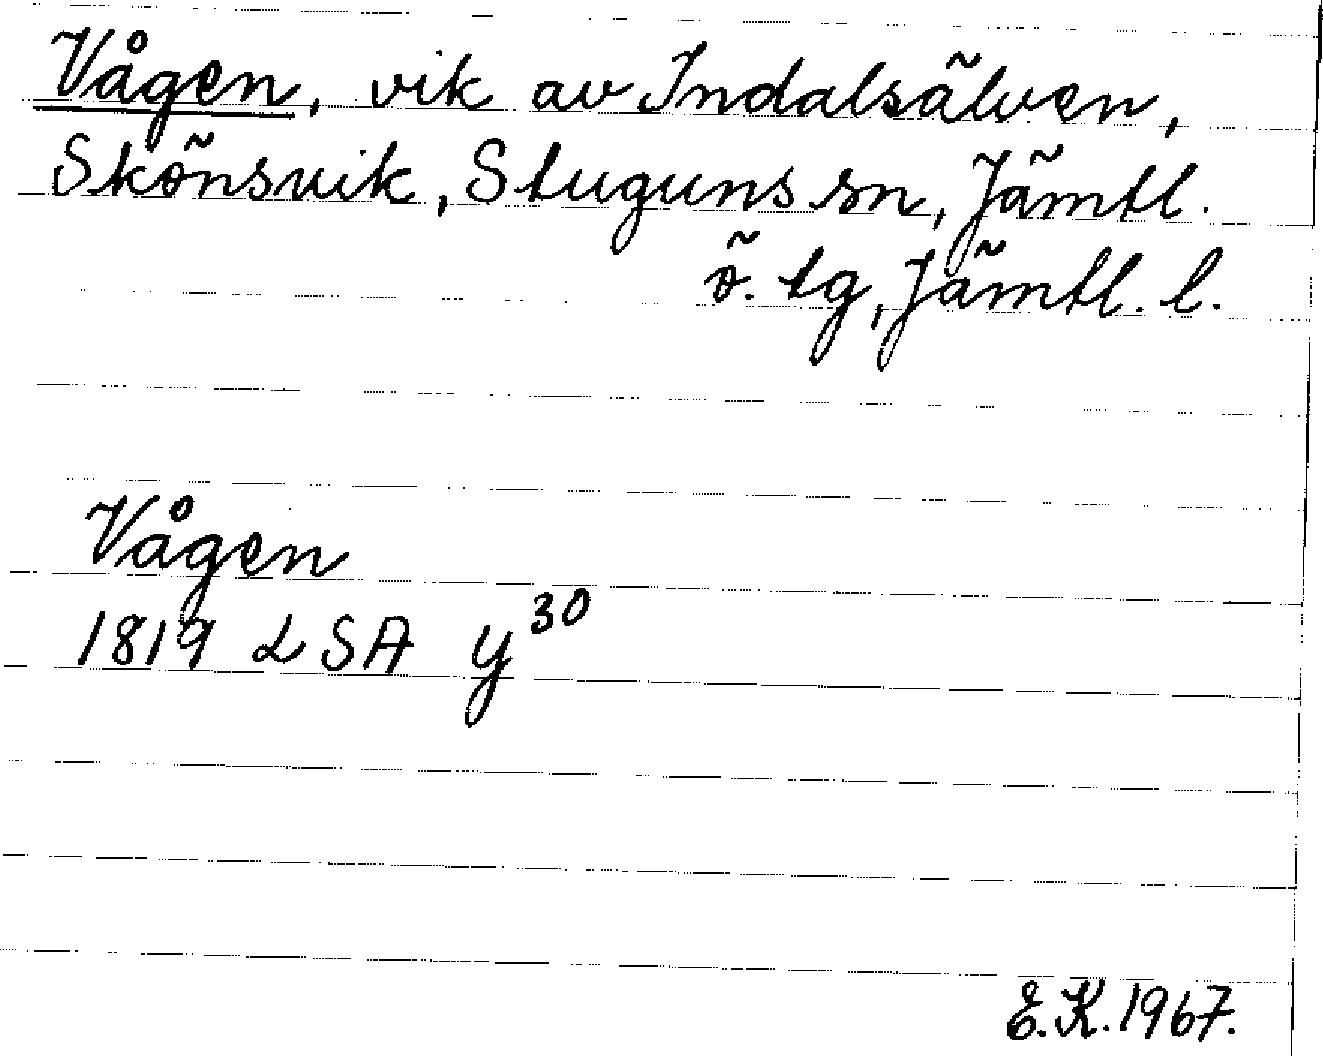 Vågen, vik av Indalsälven,
Skönsvik, Stuguns sn, Jämtl.
ö. tg, Jämtl. l.
Vågen
1819 LSA y³⁰
E.K. 1967.